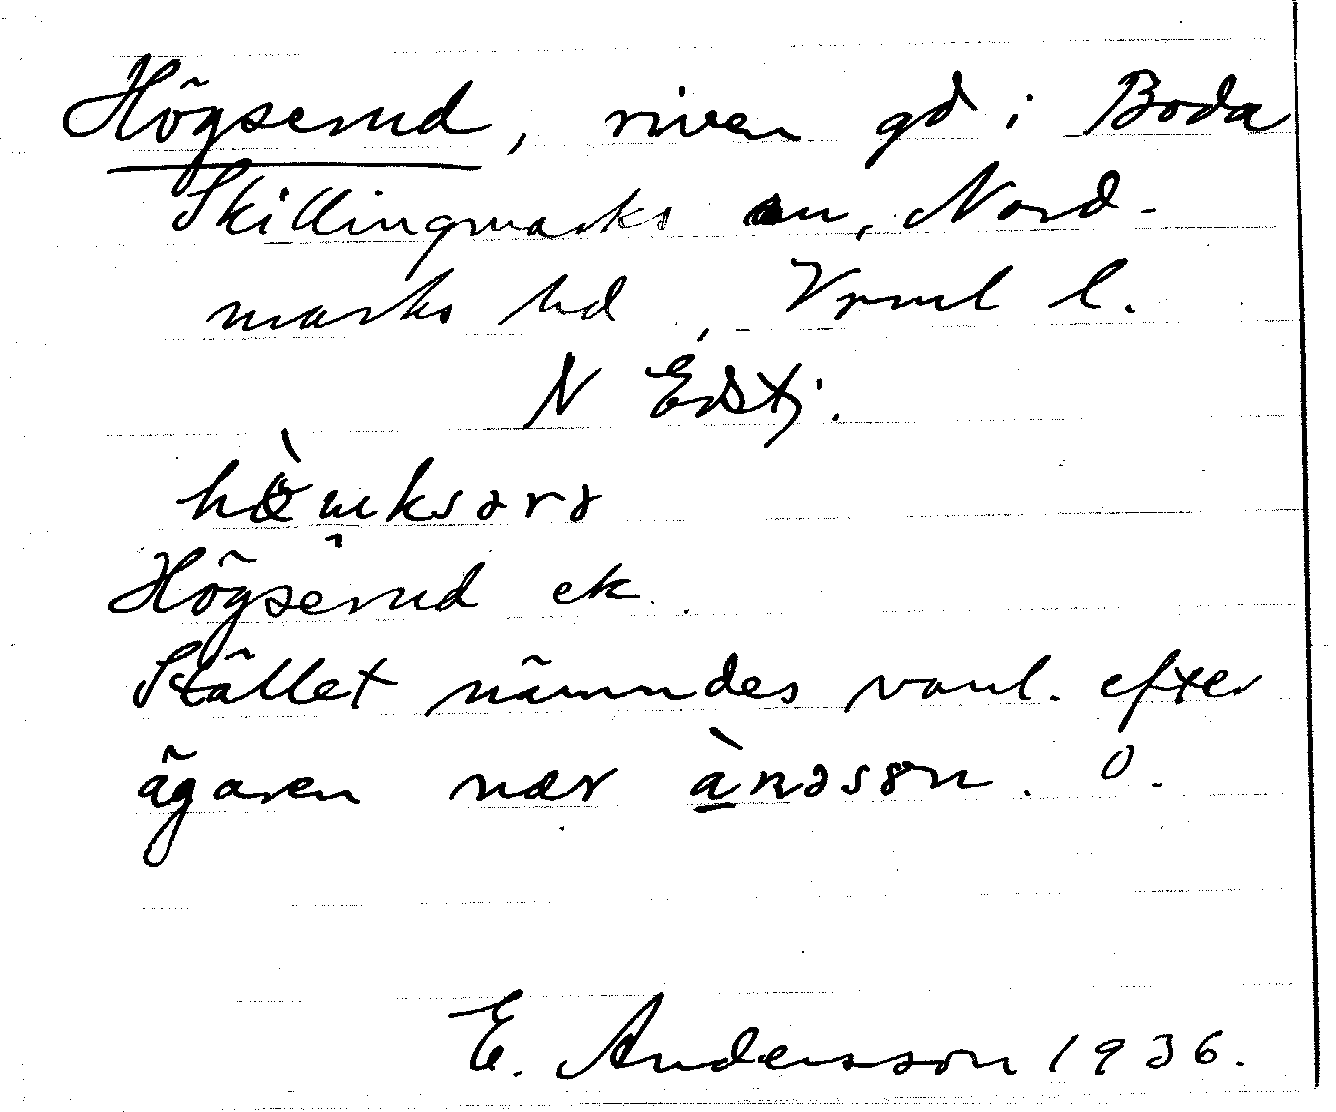 Högserud, riven gd i Boda
Skillingmarks sn, Nord-
marks hd, Vrml l.
N Edstj.
Högserud ek.
Stället nämndes vanl. efter
ägaren nær ànəsən. O.
E. Andersson 1936.